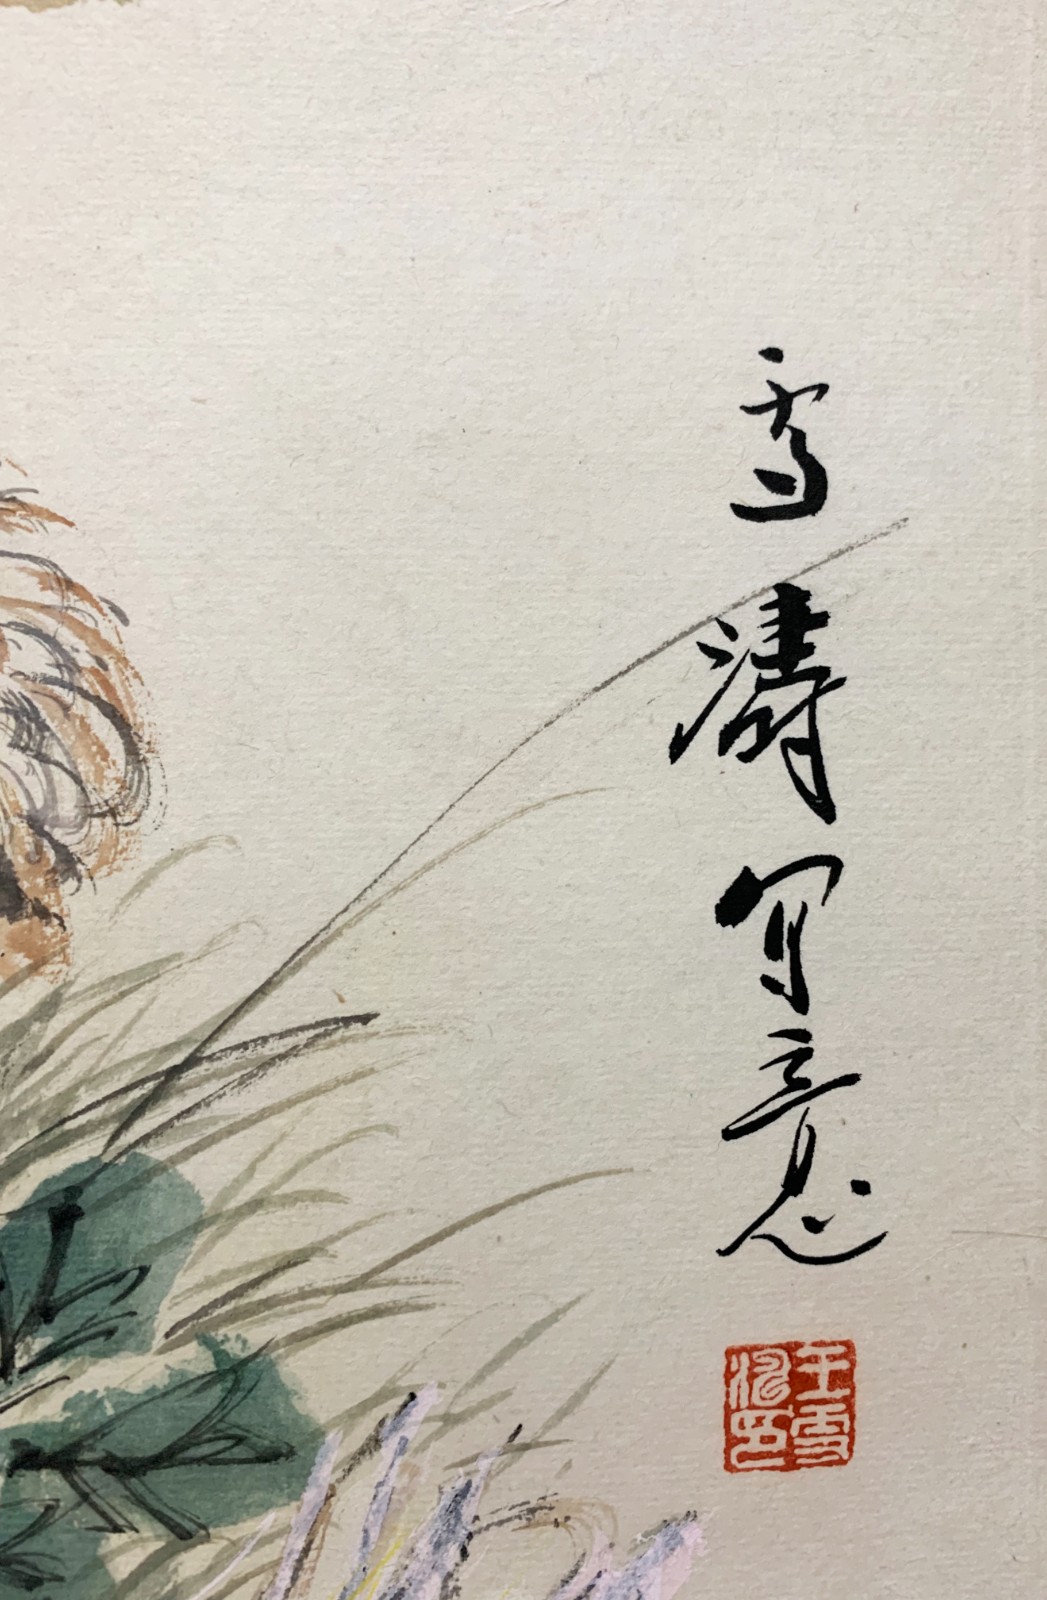 雪濤写意
王雪濤印